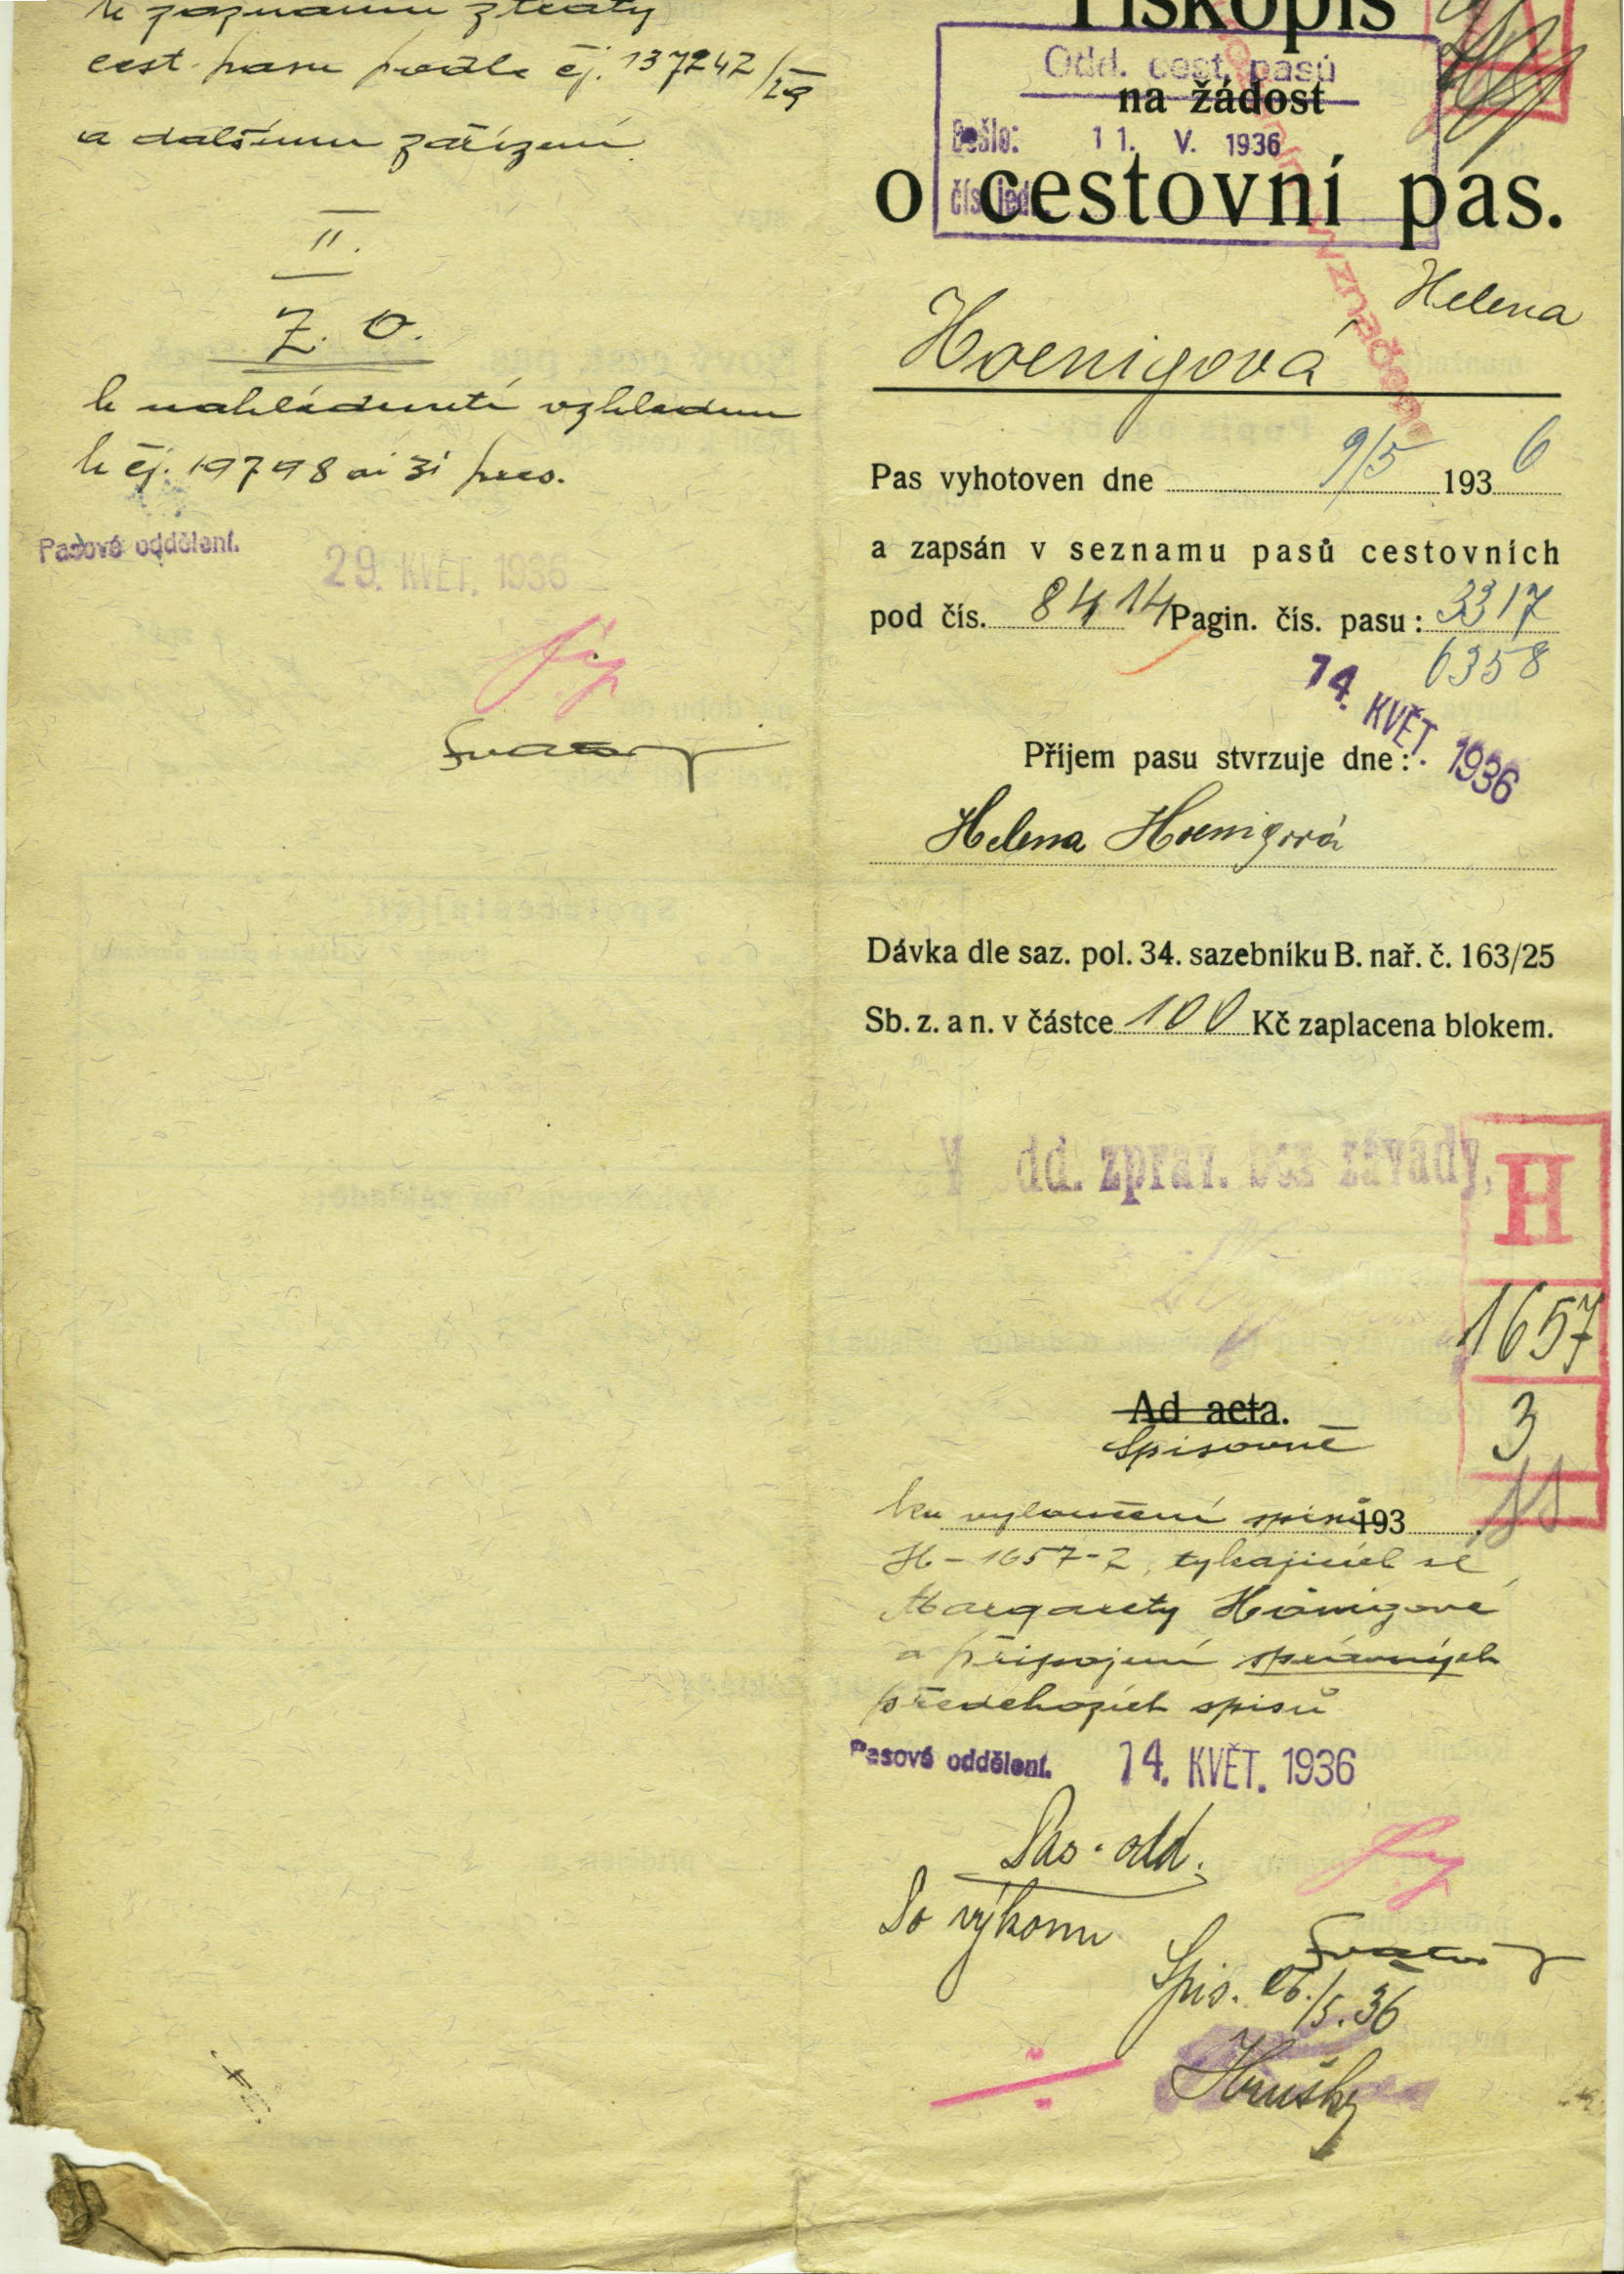 k poznámu ztráty
cest. pasu podle čj. 137242/29
a dalšímu zařízení.
II.
Z. O.
k nahlédnutí vzhledem
k čj. 19798 ai 31 pres.
Pasové oddělení.
29. KVĚT. 1936
Tiskopis
na žádost
o cestovní pas.
Odd. cest. pasů
Došlo: 11. V. 1936
čís. jed.
Helena
Hoenigová
Pas vyhotoven dne 9/5 1936
a zapsán v seznamu pasů cestovních
pod čís. 8414 Pagin. čís. pasu: 3317
6358
14. KVĚT. 1936
Příjem pasu stvrzuje dne:
Helena Hoenigová
Dávka dle saz. pol. 34. sazebníku B. nař. č. 163/25
Sb. z. a n. v částce 100 Kč zaplacena blokem.
V dd. zprav. bez závady,
H
1657
3
Ad acta.
Spisovně
ku vyloučení spisů 193
H-1657-2, týkajících se
Margarety Hönigové
a připojení správných
předchozích spisů
Pasové oddělení. 14. KVĚT. 1936
Pas. odd.
Po výkonu
Spis. 26./5. 36